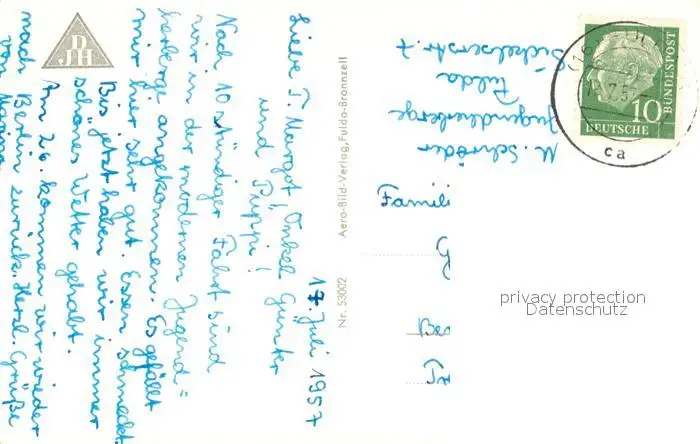 17. Juli 1957
Liebe T. Margot, Onkel Günter
und Puppi!
Nach 10 stündiger Fahrt sind
wir in der modernen Jugend=
herberge angekommen. Es gefällt
mir hier sehr gut. Essen schmeckt.
Bis jetzt haben wir immer
schönes Wetter gehabt.
Am 26. kommen wir wieder
nach Berlin zurück. Herzl. Grüße
von
DJH
Nr. 53002 Aero-Bild-Verlag, Fulda-Bronnzell
M. Schröder
Jugendherberge
Fulda
Famili
G
Ber
10
DEUTSCHE
BUNDESPOST
ca
privacy protection
Datenschutz